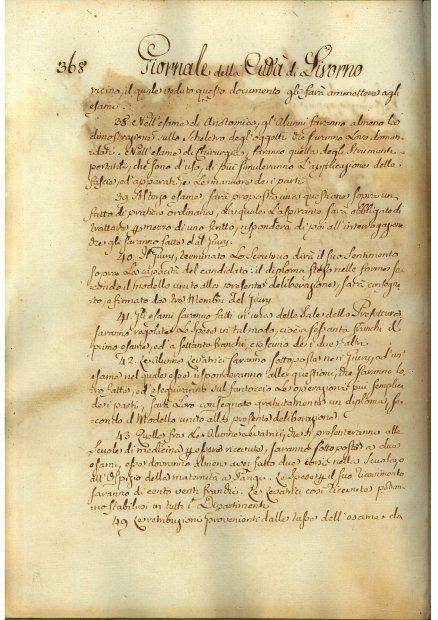 368 Giornale della Città di Livorno
vicino, il quale veduto questo documento gli farà ammettere agli
esami.
38. Nell'esame di Anatomico, gl'Alunni faranno almeno la
dimostrazione sullo scheletro degl'oggetti che saranno loro doman-
dati. Nell'esame di Chirurgia, faranno quella degli strumenti
portatili, che sono d'uso, di più simuleranno l'applicazione delle
fascie, ed apparati, e le manovre dei parti
39. Al terzo esame, sarà proposta una questione sopra un
fatto di pratica ordinaria, la quale l'aspirante sarà obbligato di
trattare p mezzo di uno scritto, risponderà di poi all'interrogazione
che gli saranno fatte dal Giury.
40. Il Giury, terminato lo scrutinio dirà il suo sentimento
sopra la capacità del candidato: il diploma steso nelle forme se-
condo il modello unito alla presente deliberazione, sarà consegna-
to, e firmato dai tre Membri del Giury
41. Gli esami saranno fatti in una delle Sale della Prefettura
saranno regolate le spese in tal modo, cioè a sessanta franchi il
primo esame, ed a settanta franchi, ciascuno dei due altri.
42. Le Alunne Levatrici saranno sottoposte nei Giury, ad un'
esame nel quale esse risponderanno alle questioni, che saranno lo-
ro fatte, ed eseguiranno sul fantoccio le operazioni più semplici
dei parti, sarà loro consegnato gratuitamente un diploma, se-
condo il Modello unito alla presente deliberazione
43. Quelle fra le Alunne Levatrici, che si presenteranno alle
Scuole di medicina p essere ricevute, saranno sottoposte a due
esami, esse dovranno almeno aver fatto due corsi nella Scuola, o
all'Ospizio della maternità a Parigi. Le spese p il suo ricevimento
saranno di cento venti franchi. Le Levatrici così ricevute potran-
no stabilirsi in tutti i Dipartimenti
49. Le retribuzioni provenienti dalle tasse dell'esame, da